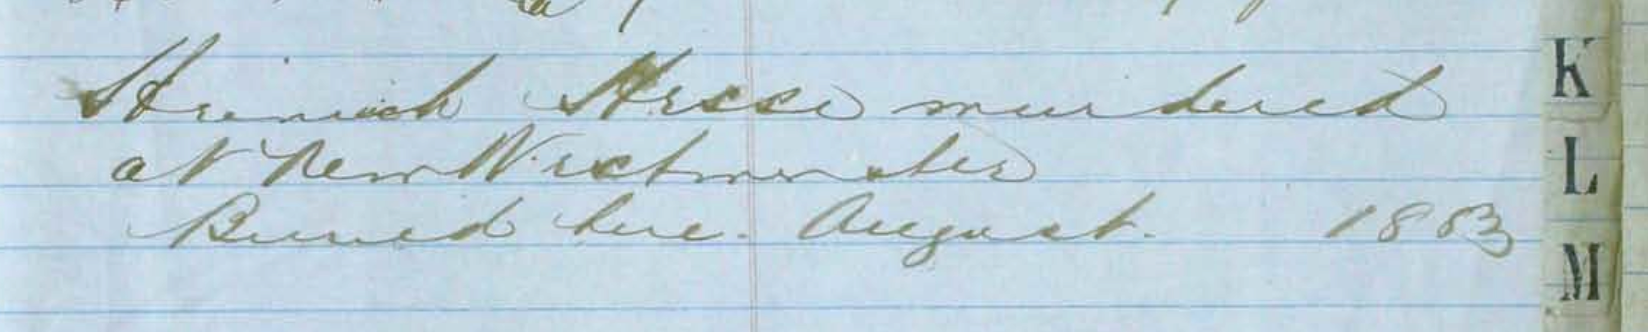 Heinrich Hesse murdered
at New Westminster
Buried here. August. 1883
K
L
M